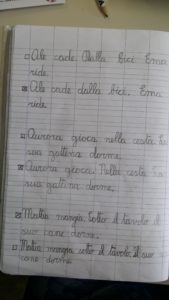 Ale cade. Dalla bici. Ema
ride.
Ale cade dalla bici. Ema
ride.
Aurora gioca nella cesta. La
sua gattina dorme.
Aurora gioca. Nella cesta la
sua gattina dorme.
Mattia mangia. Sotto il tavolo il
suo cane dorme.
Mattia mangia sotto il tavolo. Il suo
cane dorme.